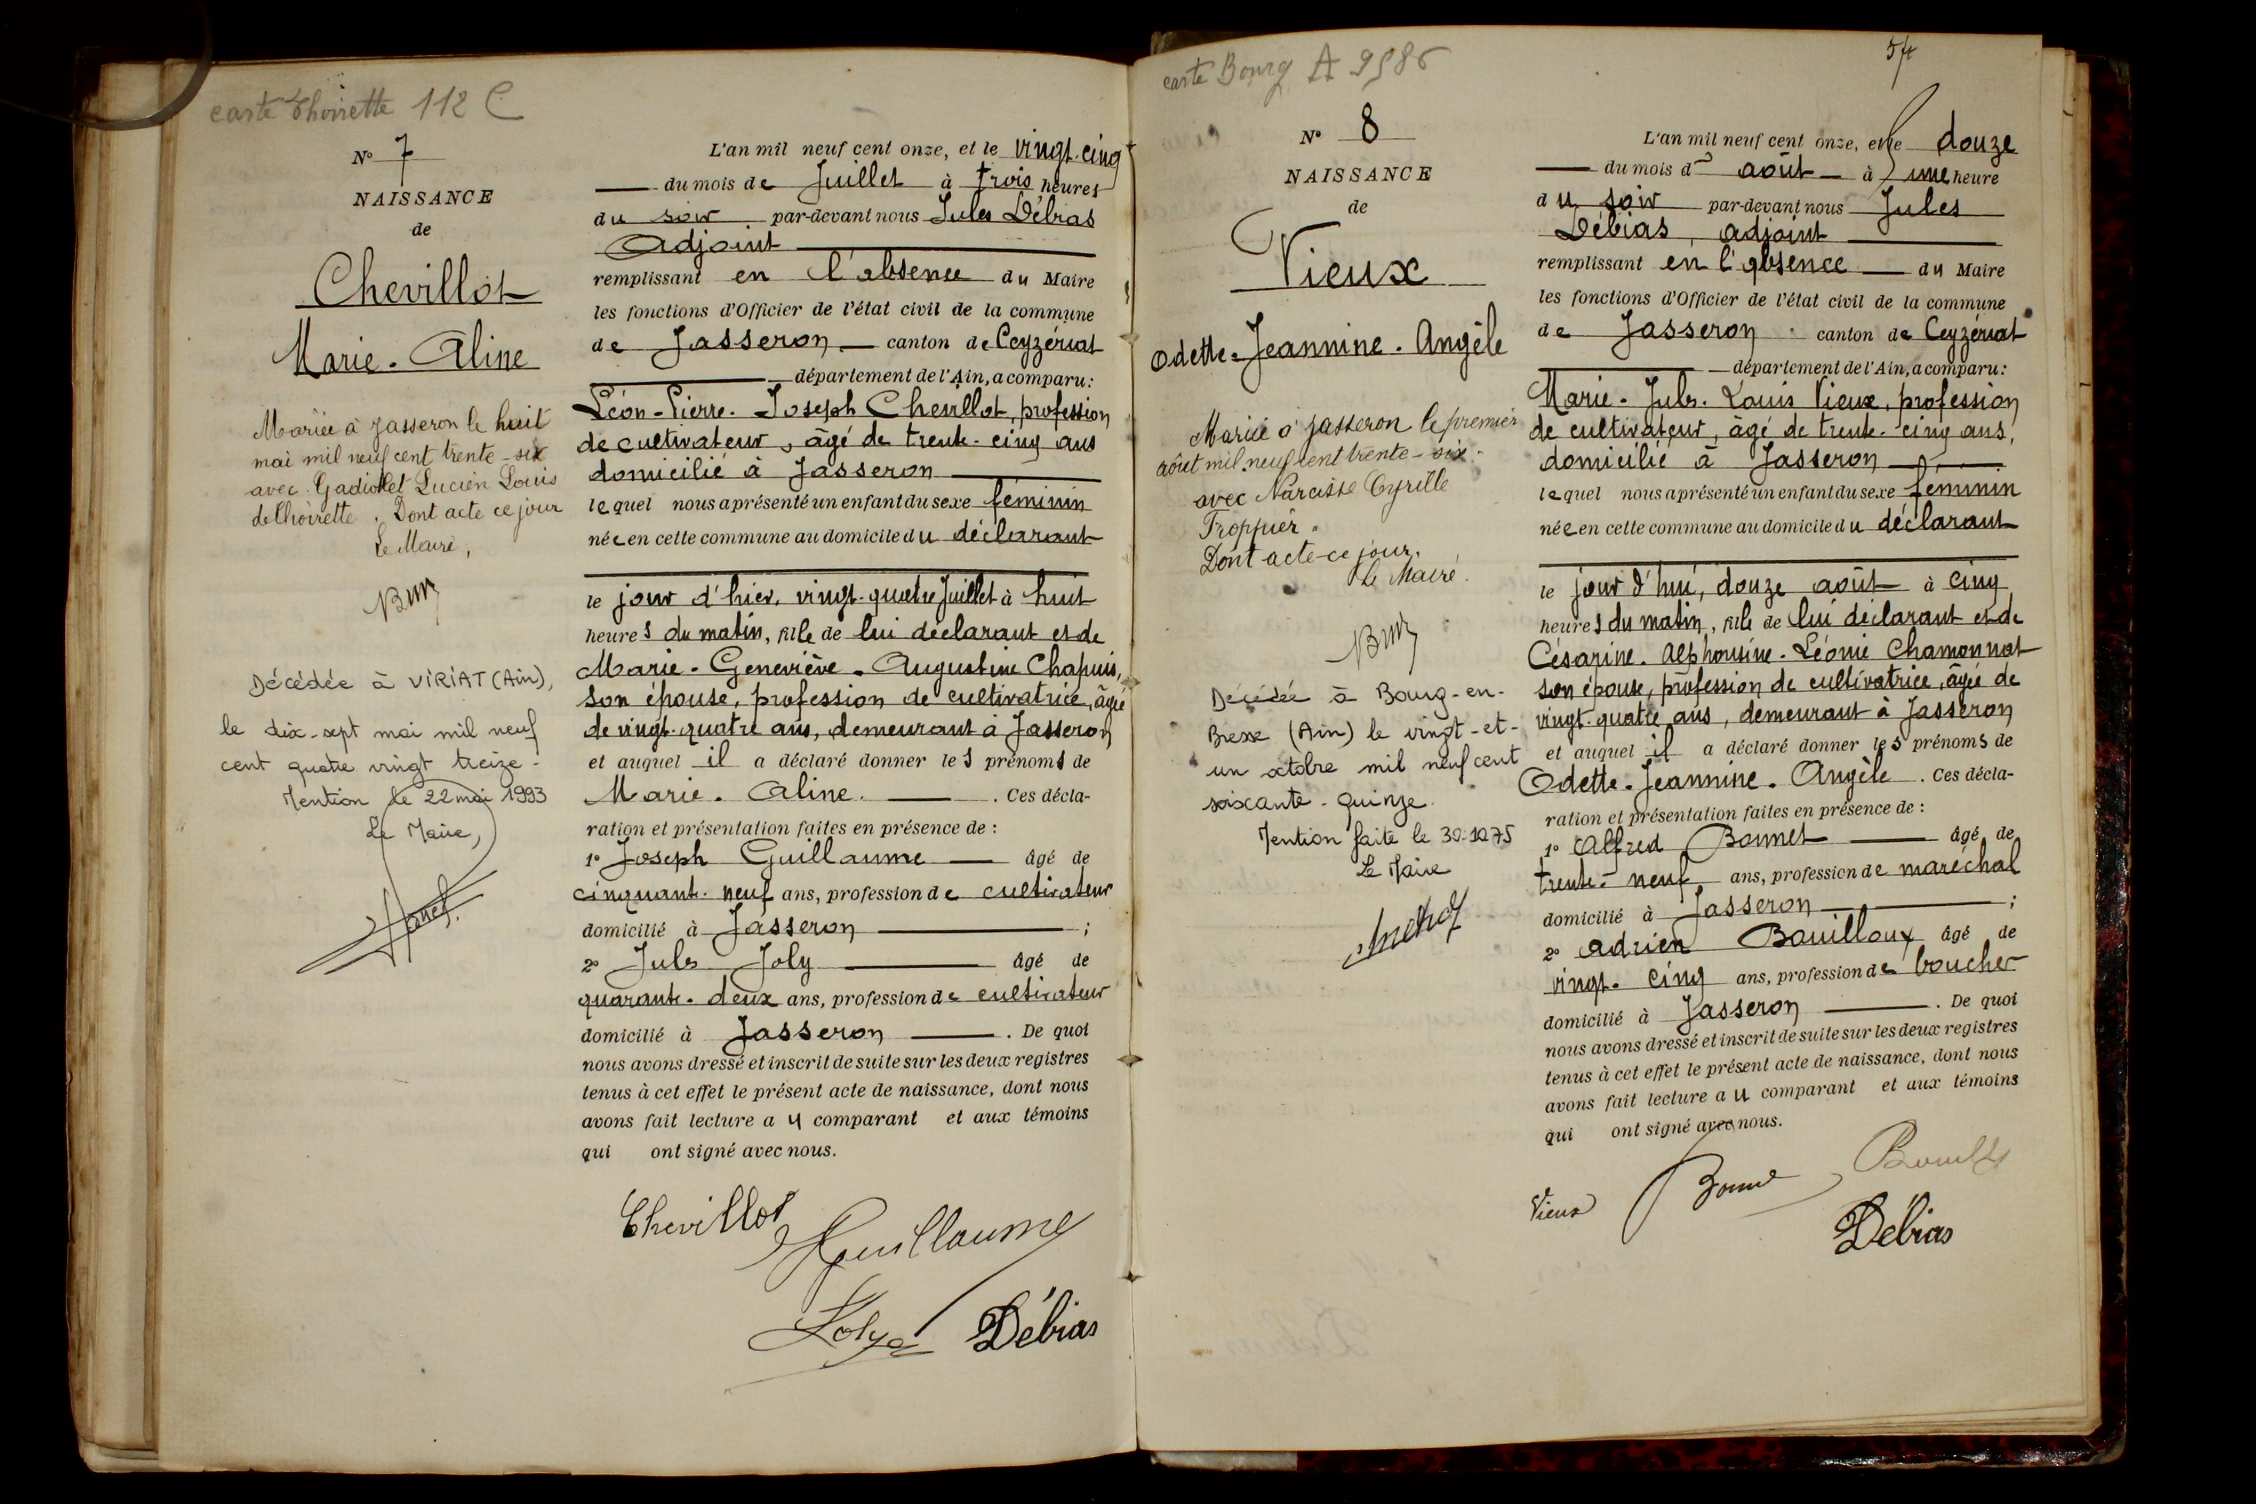 carte Thoirette 112 C
N° 7
NAISSANCE
de
Chevillot
Marie. Aline
Mariée à Jasseron le huit
mai mil neuf cent trente-six
avec Gadiollet Lucien Louis
de Thoirette. Dont acte ce jour
Le Maire,
Décédée à VIRIAT (Ain),
le dix-sept mai mil neuf
cent quatre vingt treize-
Mention le 22 mai 1993
Le Maire,
L'an mil neuf cent onze, et le vingt-cinq
du mois de Juillet à trois heures
du soir par-devant nous Jules Débias
Adjoint
remplissant en l'absence du Maire
les fonctions d'Officier de l'état civil de la commune
de Jasseron canton de Ceyzériat
département de l'Ain, a comparu:
Léon-Pierre. Joseph Chevillot, profession
de cultivateur, âgé de trente-cinq ans
domicilié à Jasseron
lequel nous a présenté un enfant du sexe féminin
née en cette commune au domicile du déclarant
le jour d'hier, vingt-quatre Juillet à huit
heures du matin, fille de lui déclarant et de
Marie-Geneviève-Augustine Chapuis,
son épouse, profession de cultivatrice, âgée
de vingt-quatre ans, demeurant à Jasseron
et auquel il a déclaré donner les prénoms de
Marie. Aline. Ces décla-
ration et présentation faites en présence de :
1° Joseph Guillaume âgé de
cinquante-neuf ans, profession de cultivateur
domicilié à Jasseron ;
2° Jules Joly âgé de
quarante-deux ans, profession de cultivateur
domicilié à Jasseron . De quoi
nous avons dressé et inscrit de suite sur les deux registres
tenus à cet effet le présent acte de naissance, dont nous
avons fait lecture au comparant et aux témoins
qui ont signé avec nous.
Chevillot
Guillaume
Joly
Débias
carte Bourg A 9586
54
N° 8
NAISSANCE
de
Vieux
Odette-Jeannine. Angèle
Mariée à Jasseron le premier
août mil neuf cent trente-six.
avec Narcisse Cyrille
Troppier.
Dont acte ce jour.
le Maire.
Décédée à Bourg-en-
Bresse (Ain) le vingt-et-
un octobre mil neuf cent
soixante-quinze.
Mention faite le 30.10.75
Le Maire
L'an mil neuf cent onze, et le douze
du mois d' août à une heure
du soir par-devant nous Jules
Débias, adjoint
remplissant en l'absence du Maire
les fonctions d'Officier de l'état civil de la commune
de Jasseron canton de Ceyzériat
département de l'Ain, a comparu:
Marie-Jules-Louis Vieux, profession
de cultivateur, âgé de trente-cinq ans,
domicilié à Jasseron
lequel nous a présenté un enfant du sexe féminin
née en cette commune au domicile du déclarant
le jour d'hui, douze août à cinq
heures du matin, fille de lui déclarant et de
Césarine-Alphonsine-Léonie Chamonnat
son épouse, profession de cultivatrice, âgée de
vingt-quatre ans, demeurant à Jasseron
et auquel il a déclaré donner les prénoms de
Odette-Jeannine. Angèle. Ces décla-
ration et présentation faites en présence de :
1° Alfred Bonnet âgé de
trente-neuf ans, profession de maréchal
domicilié à Jasseron ;
2° Adrien Bouilloux âgé de
vingt-cinq ans, profession de boucher
domicilié à Jasseron . De quoi
nous avons dressé et inscrit de suite sur les deux registres
tenus à cet effet le présent acte de naissance, dont nous
avons fait lecture au comparant et aux témoins
qui ont signé avec nous.
Vieux
Débias